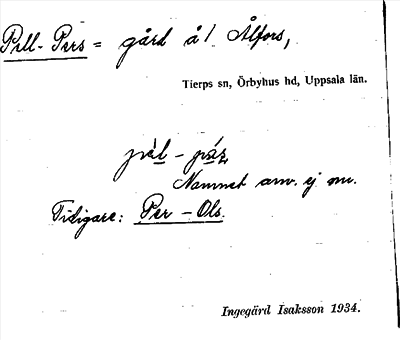 Pell-Pers = gård å l Ålfors,
Tierps sn, Örbyhus hd, Uppsala län.
pèl - páz
Namnet anv. ej nu.
Tidigare: Per - Ols.
Ingegärd Isaksson 1934.